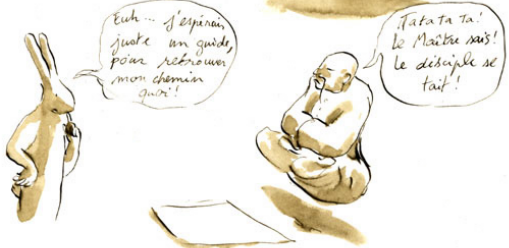 Euh... j'espérais
juste un guide,
pour retrouver
mon chemin
quoi!
Tatata ta!
Le Maître sais!
Le disciple se
tait!